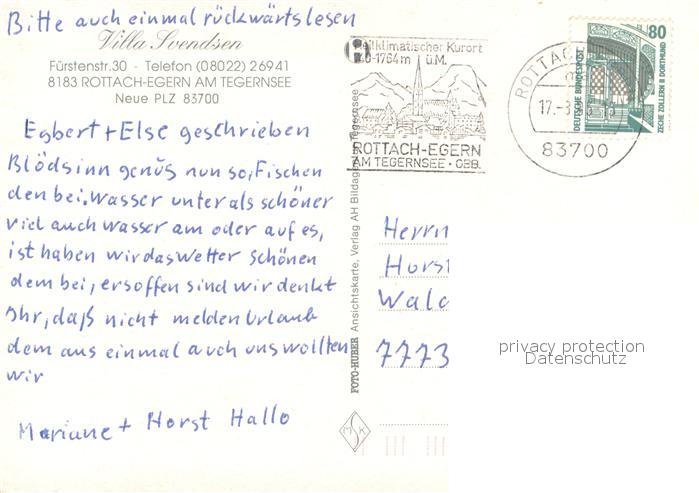 Bitte auch einmal rückwärtslesen
Villa Svendsen
Fürstenstr.30 · Telefon (08022) 26941
8183 ROTTACH-EGERN AM TEGERNSEE
Neue PLZ 83700
Egbert + Else geschrieben
Blödsinn genug nun so, Fischen
den bei. Wasser unter als schöner
viel auch Wasser am oder auf es,
ist haben wir das Wetter schönen
dem bei, ersoffen sind wir denkt
Ihr, daß nicht melden Urlaub
dem aus einmal auch uns wollten
wir
Mariane + Horst Hallo
Heilklimatischer Kurort
740-1764m ü.M.
ROTTACH-EGERN
AM TEGERNSEE · OBB.
ROTTAC
17.-8
83700
80
DEUTSCHE BUNDESPOST
ZECHE ZOLLERN II DORTMUND
FOTO-HUBER Ansichtskarte, Verlag AH Bildagentur Tegernsee
Herrn
Horst
Wald
7773
MSK
privacy protection
Datenschutz